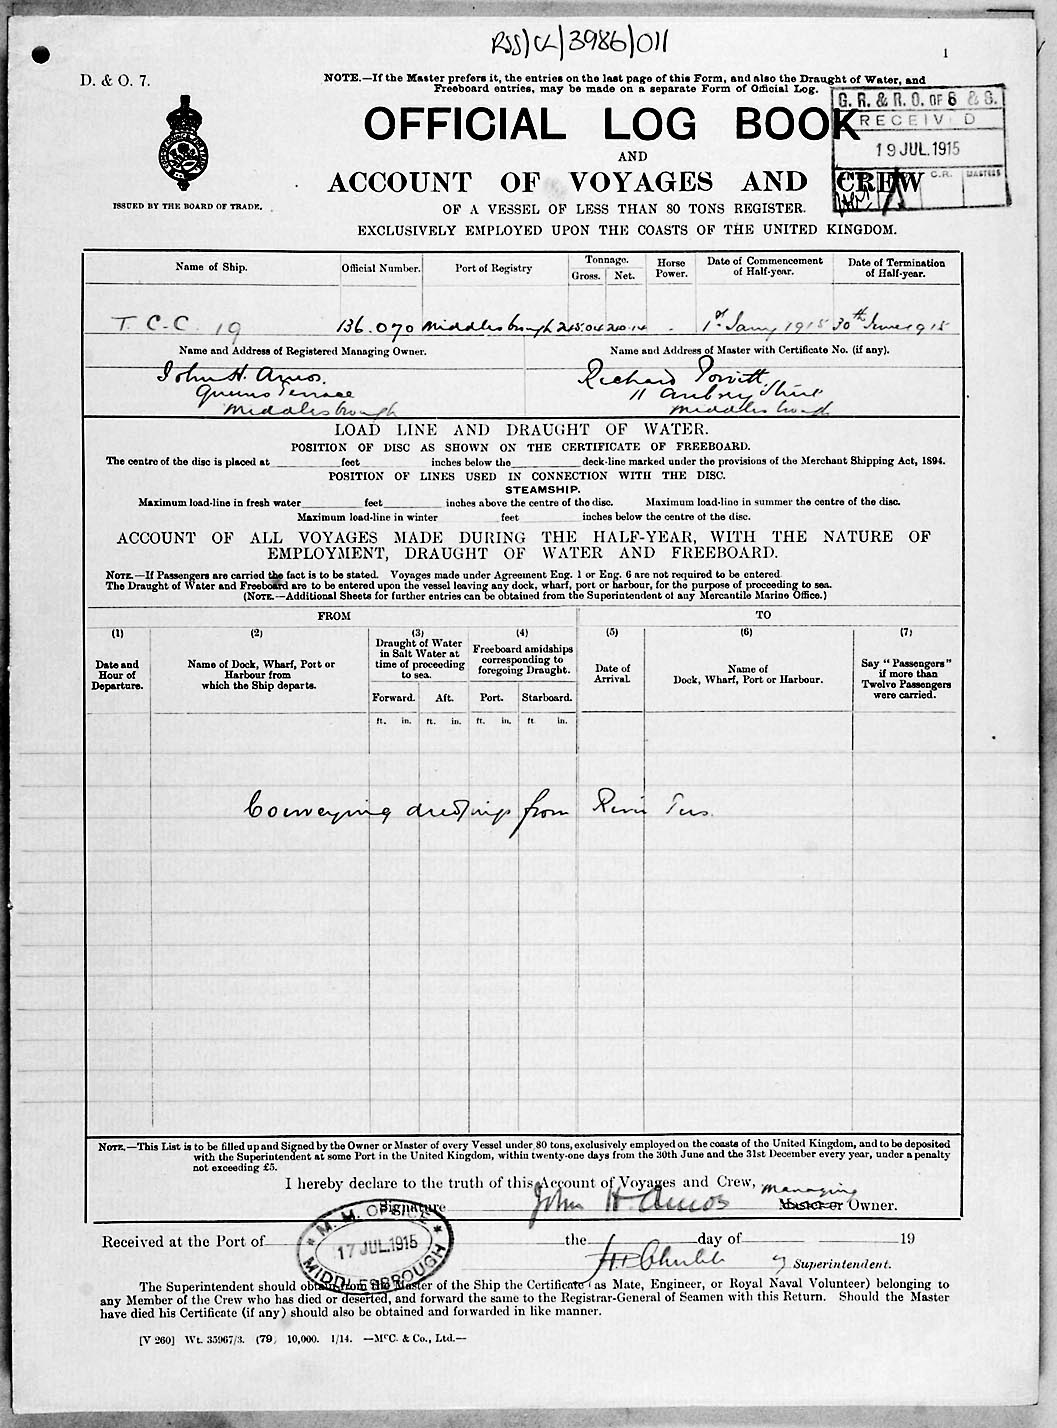 RSS/CL/3986/011
1
D. & O. 7.
NOTE.—If the Master prefers it, the entries on the last page of this Form, and also the Draught of Water, and
Freeboard entries, may be made on a separate Form of Official Log.
OFFICIAL LOG BOOK
G. R. & R. O. OF S & S.
RECEIVED
19 JUL. 1915
C.R. MASTERS
AND
ACCOUNT OF VOYAGES AND CREW
ISSUED BY THE BOARD OF TRADE.
OF A VESSEL OF LESS THAN 80 TONS REGISTER.
EXCLUSIVELY EMPLOYED UPON THE COASTS OF THE UNITED KINGDOM.
Name of Ship. Official Number. Port of Registry Tonnage. Gross. Net. Horse Power. Date of Commencement of Half-year. Date of Termination of Half-year.
T. C. C. 19 136.070 Middlesbrough 1st Jany 1915 30th June 1915
Name and Address of Registered Managing Owner. Name and Address of Master with Certificate No. (if any).
John H. Amos. Richard
Queens Terrace 11
Middlesbrough Middlesbrough
LOAD LINE AND DRAUGHT OF WATER.
POSITION OF DISC AS SHOWN ON THE CERTIFICATE OF FREEBOARD.
The centre of the disc is placed at feet inches below the deck-line marked under the provisions of the Merchant Shipping Act, 1894.
POSITION OF LINES USED IN CONNECTION WITH THE DISC.
STEAMSHIP.
Maximum load-line in fresh water feet inches above the centre of the disc. Maximum load-line in summer the centre of the disc.
Maximum load-line in winter feet inches below the centre of the disc.
ACCOUNT OF ALL VOYAGES MADE DURING THE HALF-YEAR, WITH THE NATURE OF
EMPLOYMENT, DRAUGHT OF WATER AND FREEBOARD.
NOTE.—If Passengers are carried the fact is to be stated. Voyages made under Agreement Eng. 1 or Eng. 6 are not required to be entered
The Draught of Water and Freeboard are to be entered upon the vessel leaving any dock, wharf, port or harbour, for the purpose of proceeding to sea.
(NOTE.—Additional Sheets for further entries can be obtained from the Superintendent of any Mercantile Marine Office.)
FROM TO
(1) (2) (3) (4) (5) (6) (7)
Date and Hour of Departure. Name of Dock, Wharf, Port or Harbour from which the Ship departs. Draught of Water in Salt Water at time of proceeding to sea. Freeboard amidships corresponding to foregoing Draught. Date of Arrival. Name of Dock, Wharf, Port or Harbour. Say "Passengers" if more than Twelve Passengers were carried.
Forward. Aft. Port. Starboard.
ft. in. ft. in. ft. in. ft. in.
Conveying dredgings from River Tees.
NOTE.—This List is to be filled up and Signed by the Owner or Master of every Vessel under 80 tons, exclusively employed on the coasts of the United Kingdom, and to be deposited
with the Superintendent at some Port in the United Kingdom, within twenty-one days from the 30th June and the 31st December every year, under a penalty
not exceeding £5.
I hereby declare to the truth of this Account of Voyages and Crew,
Signature John H. Amos managing Master or Owner.
M. M. OFFICE
17 JUL. 1915
MIDDLESBROUGH
Received at the Port of the day of 19
Superintendent.
The Superintendent should obtain from the Master of the Ship the Certificate (as Mate, Engineer, or Royal Naval Volunteer) belonging to
any Member of the Crew who has died or deserted, and forward the same to the Registrar-General of Seamen with this Return. Should the Master
have died his Certificate (if any) should also be obtained and forwarded in like manner.
[V 260] Wt. 35967/3. (79) 10,000. 1/14. —McC. & Co., Ltd.—